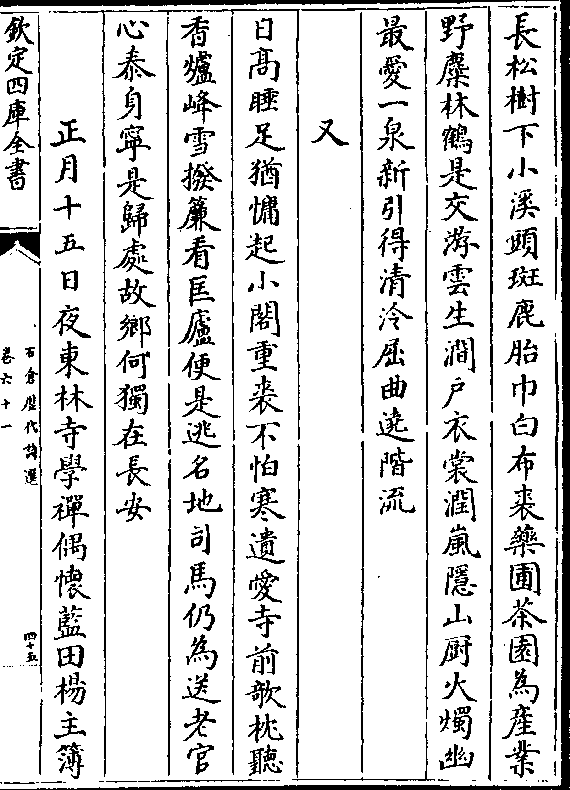 長松樹下小溪頭斑鹿胎巾白布裘藥圃茶園為產業
野麋林鶴是交游雲生澗戸衣裳潤嵐隱山厨火燭幽
最愛一泉新引得清泠屈曲遶階流
又
日髙睡足猶慵起小閣重裘不怕寒遺愛寺前欹枕聽
香爐峰雪撥簾看匡廬便是逃名地司馬仍為送老官
心泰身寧是歸處故鄉何獨在長安
正月十五日夜東林寺學禪偶懷藍田楊主簿
欽定四庫全書
石倉歷代詩選
卷六十一
四十五